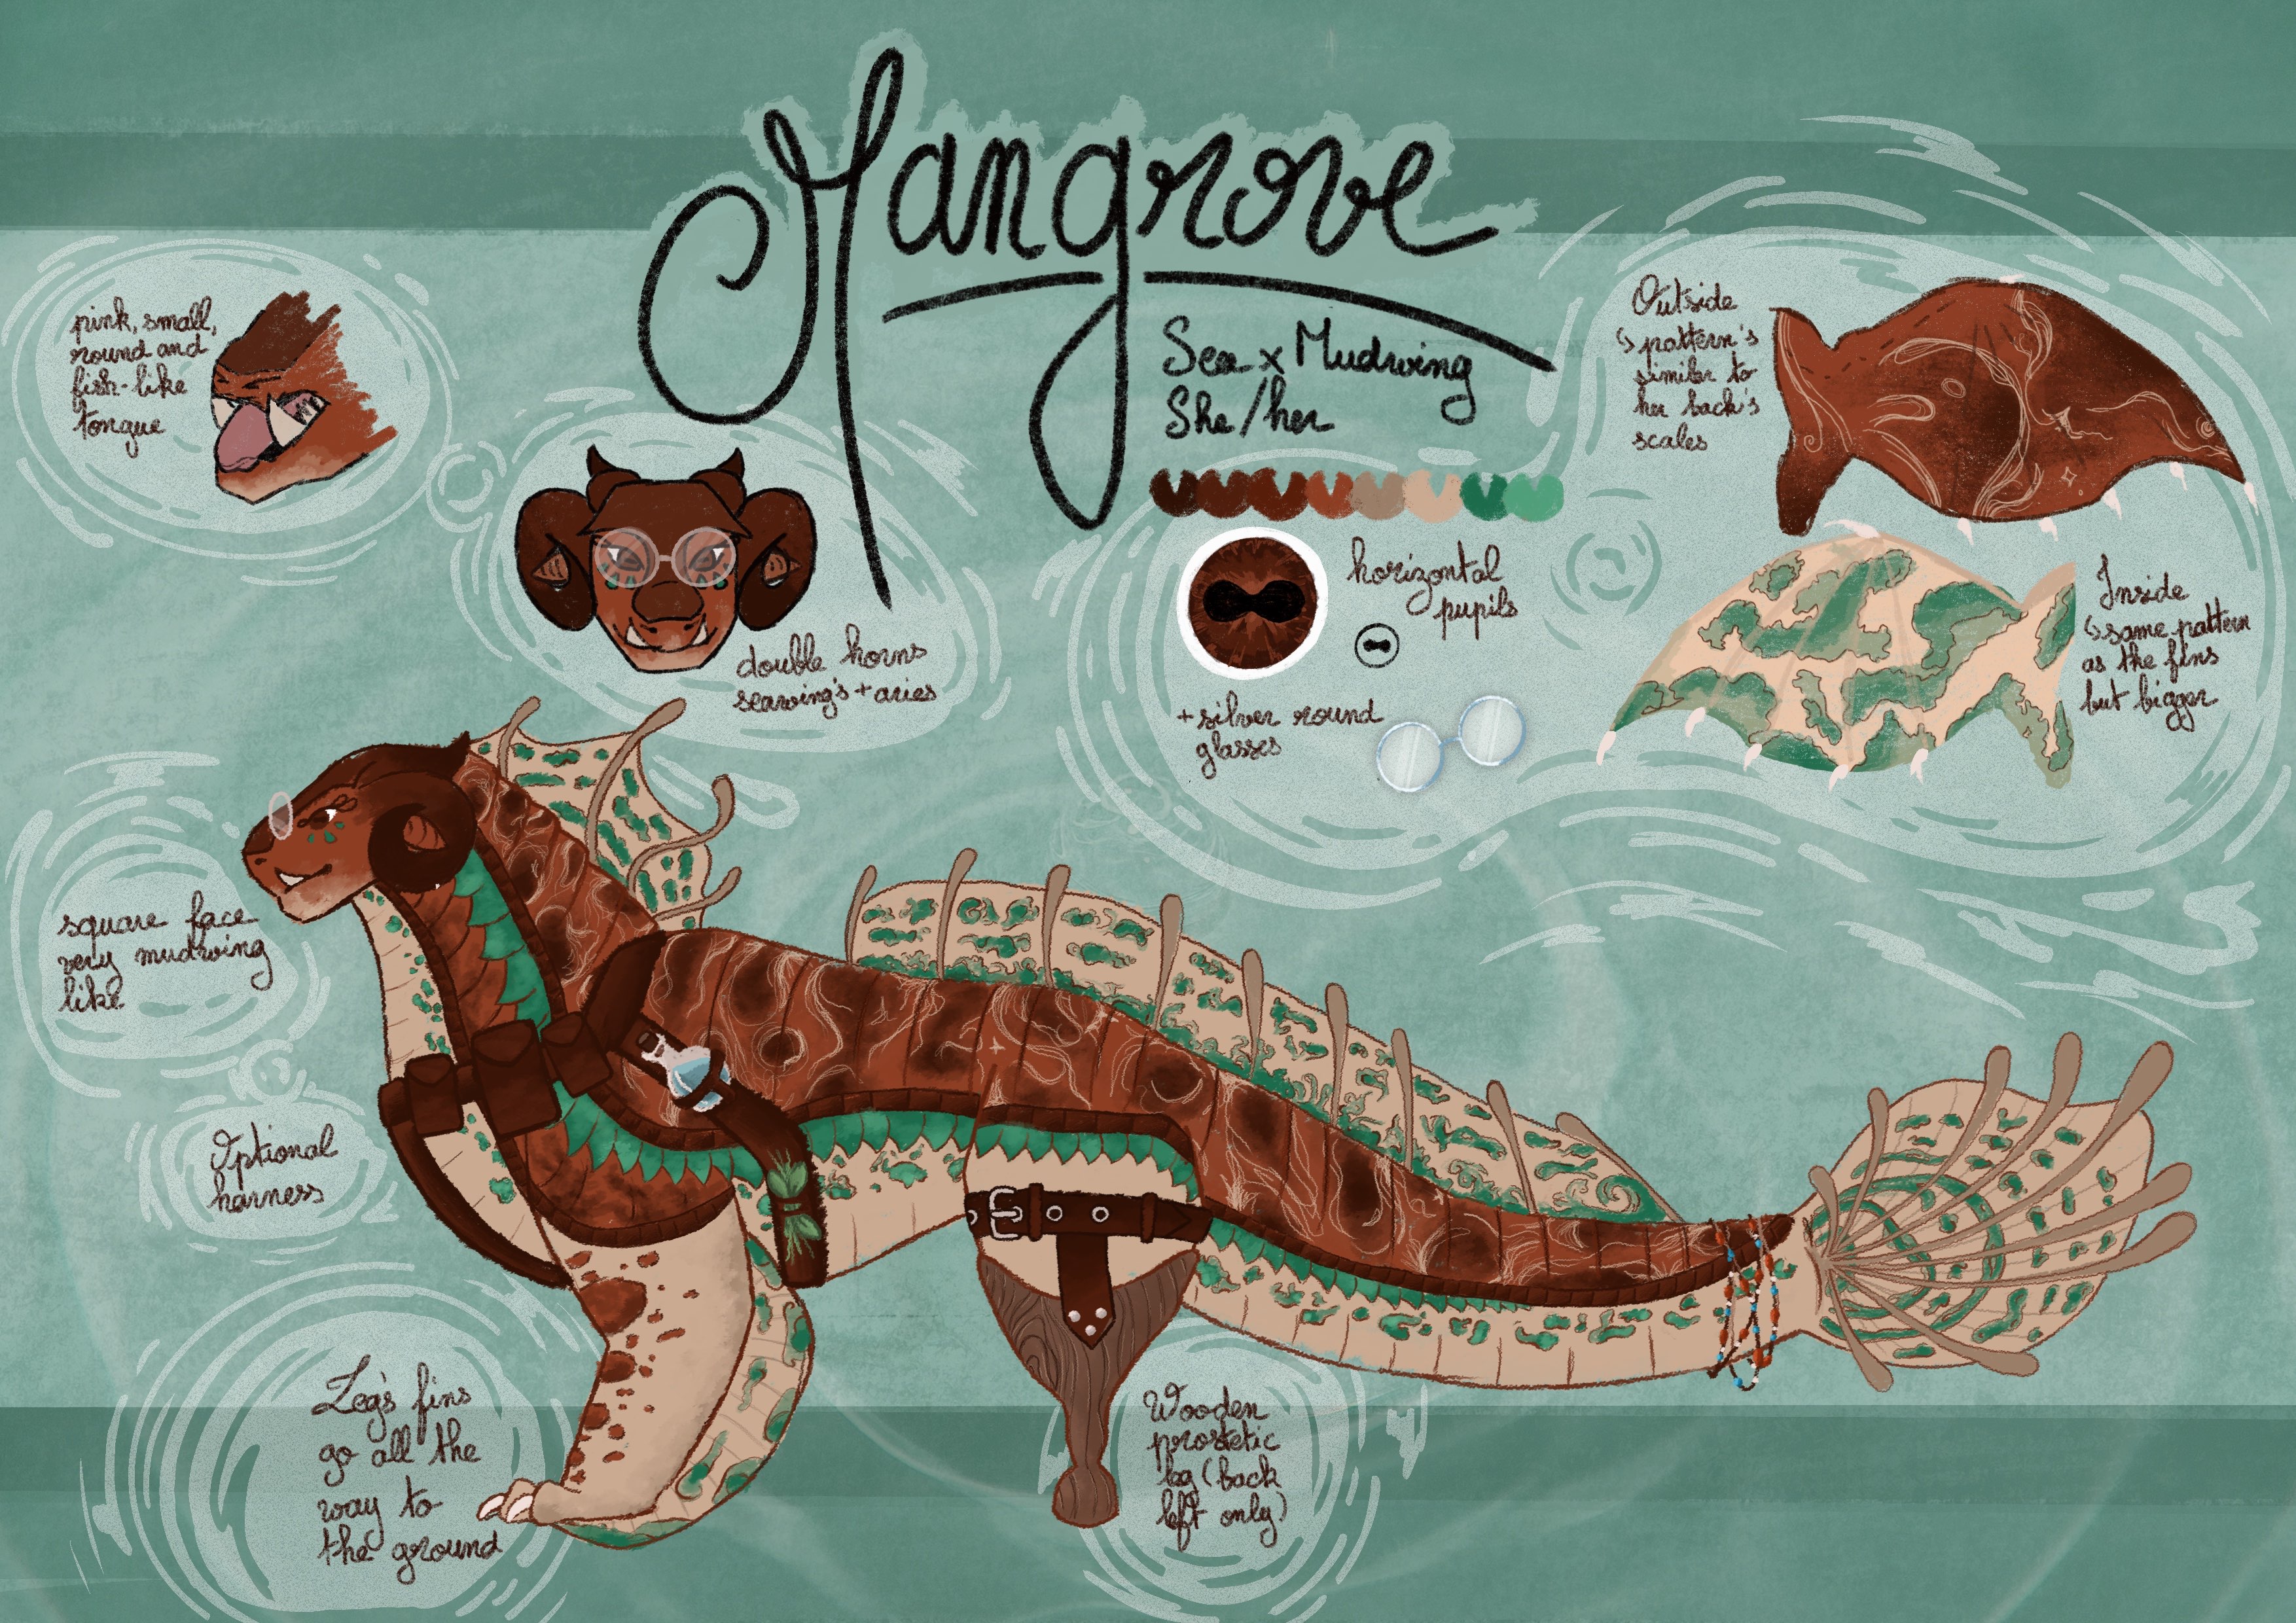 Mangrove
Sea x Mudwing
She/her
pink, small,
round and
fish-like
tongue
double horns
seawing's + aries
horizontal
pupils
+ silver round
glasses
Outside
↳ pattern's
similar to
her back's
scales
Inside
↳ same pattern
as the fins
but bigger
square face
very mudwing
like
Optional
harness
Leg's fins
go all the
way to
the ground
Wooden
prostetic
leg (back
left only)